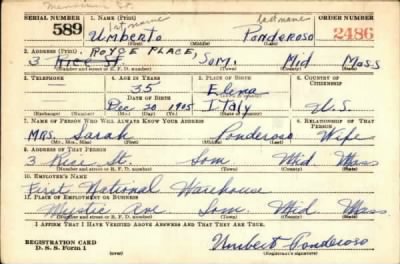 Memorial St.
1st name last name
SERIAL NUMBER 1. NAME (Print) ORDER NUMBER
589 Umberto Ponderoso 2486
(First) (Middle) (Last)
2. ADDRESS (Print) ROYCE PLACE,
3 Rice St. Som. Mid Mass
(Number and street or R. F. D. number) (Town) (County) (State)
3. TELEPHONE 4. AGE IN YEARS 5. PLACE OF BIRTH 6. COUNTRY OF CITIZENSHIP
35 Elena
DATE OF BIRTH (Town or county)
Dec 20 1905 Italy U.S.
(Exchange) (No.) (Mo.) (Day) (Yr.) (State or country)
7. NAME OF PERSON WHO WILL ALWAYS KNOW YOUR ADDRESS 8. RELATIONSHIP OF THAT PERSON
Mrs. Sarah Ponderoso Wife
(Mr., Mrs., Miss) (First) (Middle) (Last)
9. ADDRESS OF THAT PERSON
3 Rice St. Som Mid. Mass
(Number and street or R. F. D. number) (Town) (County) (State)
10. EMPLOYER'S NAME
First National Warehouse
11. PLACE OF EMPLOYMENT OR BUSINESS
Mystic Ave Som. Mid. Mass.
(Number and street or R. F. D. number) (Town) (County) (State)
I AFFIRM THAT I HAVE VERIFIED ABOVE ANSWERS AND THAT THEY ARE TRUE.
REGISTRATION CARD
D. S. S. Form 1 Umbert Ponderoso
(Registrant's signature)